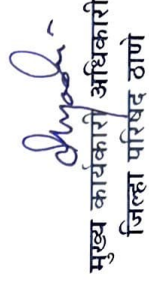 मुख्य कार्यकारी अधिकारी
जिल्हा परिषद ठाणे